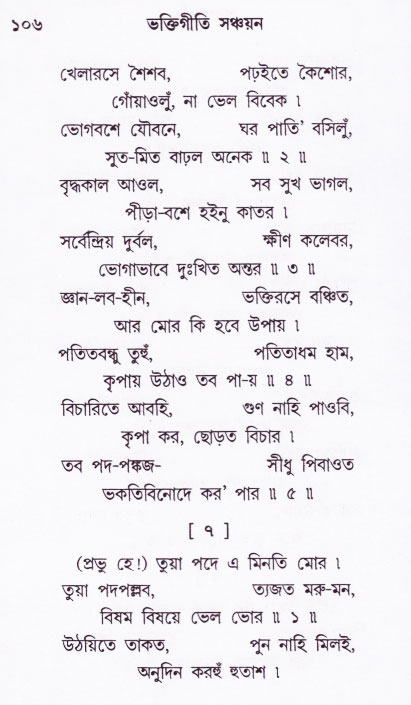 ১০৬ ভক্তিগীতি সঞ্চয়ন
খেলারসে শৈশব, পঢ়ইতে কৈশোর,
গোঁয়াওলুঁ, না ভেল বিবেক ।
ভোগবশে যৌবনে, ঘর পাতি’ বসিলুঁ,
সুত-মিত বাঢ়ল অনেক ॥ ২ ॥
বৃদ্ধকাল আওল, সব সুখ ভাগল,
পীড়া-বশে হইনু কাতর ।
সর্বেন্দ্রিয় দুর্বল, ক্ষীণ কলেবর,
ভোগাভাবে দুঃখিত অন্তর ॥ ৩ ॥
জ্ঞান-লব-হীন, ভক্তিরসে বঞ্চিত,
আর মোর কি হবে উপায় ।
পতিতবন্ধু তুহুঁ, পতিতাধম হাম,
কৃপায় উঠাও তব পা-য় ॥ ৪ ॥
বিচারিতে আবহি, গুণ নাহি পাওবি,
কৃপা কর, ছোড়ত বিচার ।
তব পদ-পঙ্কজ- সীধু পিবাওত
ভকতিবিনোদে কর’ পার ॥ ৫ ॥
[ ৭ ]
(প্রভু হে!) তুয়া পদে এ মিনতি মোর ।
তুয়া পদপল্লব, ত্যজত মরু-মন,
বিষম বিষয়ে ভেল ভোর ॥ ১ ॥
উঠয়িতে তাকত, পুন নাহি মিলই,
অনুদিন করহুঁ হুতাশ ।